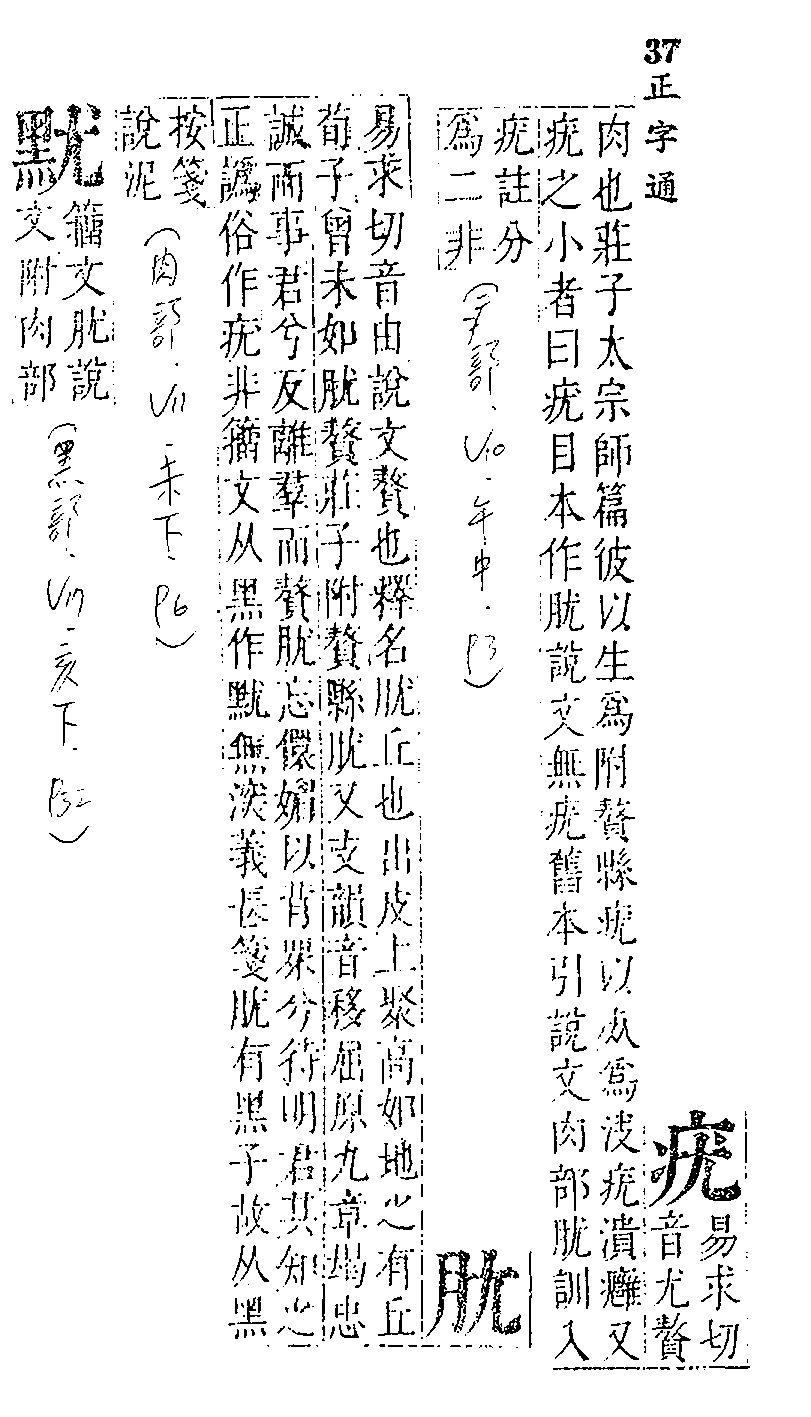 37
正字通
疣
易求切
音尤贅
肉也莊子太宗師篇彼以生爲附贅縣疣以死爲決疣潰癰又
疣之小者曰疣目本作肬說文無疣舊本引說文肉部肬訓入
疣註分
爲二非
(疒部．V10．午中．P3)
肬
易求切音由說文贅也釋名肬丘也出皮上聚高如地之有丘
荀子曾未如肬贅莊子附贅縣肬又支韻音移屈原九章竭忠
誠而事君兮反離羣而贅肬忘儇媚以背衆兮待明君其知之
正譌俗作疣非籒文从黑作黖無深義長箋肬有黑子故从黑
按箋
說泥
(肉部．V11．未下．P6)
籒文肬說
文附肉部
(黑部．V17．亥下．P32)